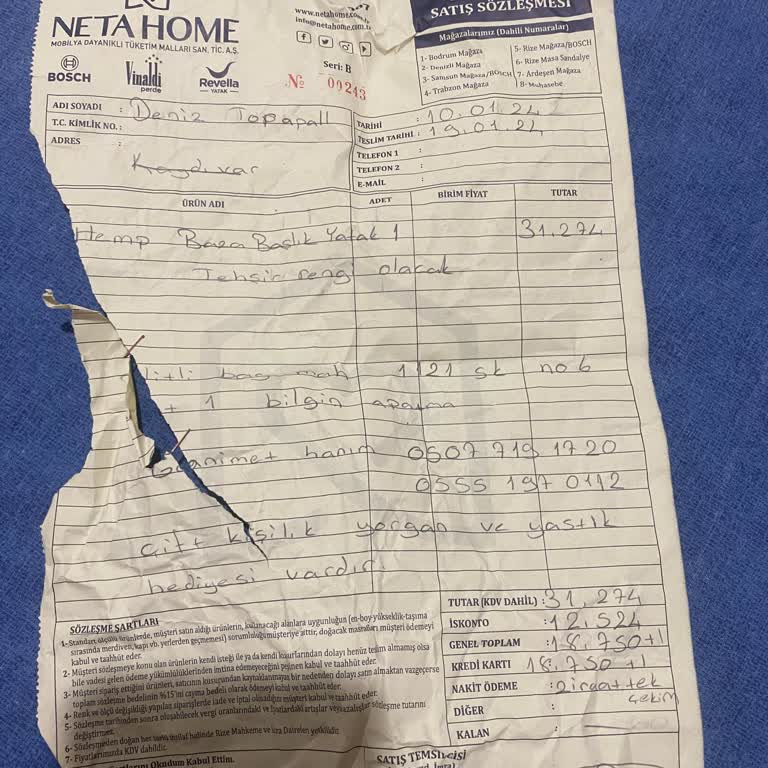 NETA HOME
MOBİLYA DAYANIKLI TÜKETİM MALLARI SAN. TİC. A.Ş.
BOSCH
Vinaldi perde
Revella YATAK
www.netahome.com.tr
info@netahome.com.tr
Seri: B
№ 09243
SATIŞ SÖZLEŞMESİ
Mağazalarımız (Dahili Numaralar)
1- Bodrum Mağaza
2- Denizli Mağaza
3- Samsun Mağaza/BOSCH
4- Trabzon Mağaza
5- Rize Mağaza/BOSCH
6- Rize Masa Sandalye
7- Ardeşen Mağaza
8- Muhasebe
ADI SOYADI : Deniz Topapall
T.C. KİMLİK NO. :
ADRES :
Kaydı var
TARİHİ : 10.01.24
TESLİM TARİHİ : 19.01.24
TELEFON 1 :
TELEFON 2 :
E-MAİL :
ÜRÜN ADI ADET BİRİM FİYAT TUTAR
Hemp Baza Başlık Yatak 1 31.274
Tehşir rengi olacak
litli baş mah 1121 sk no 6
+ 1 bilgin apartma
Ganimet hanım 0507 719 1720
0555 197 0112
Çift kişilik yorgan ve yastık
hediyesi vardır.
TUTAR (KDV DAHİL) : 31.274
İSKONTO : 12.524
GENEL TOPLAM : 18.750+1
KREDİ KARTI 18.750+1
NAKİT ÖDEME : Ziraat tek
çekim
DİĞER :
KALAN :
SÖZLEŞME ŞARTLARI
1- Standart ölçülü ürünlerde, müşteri satın aldığı ürünlerin, kulanacağı alanlara uygunluğun (en-boy-yükseklik-taşıma
sırasında merdiven, kapı vb. yerlerden geçmemesi) sorumluluğu müşteriye aittir, doğacak masrafları müşteri ödemeyi
kabul ve taahhüt eder.
2- Müşteri sözleşmeye konu olan ürünlerin kendi isteği ile ya da kendi kusurlarından dolayı henüz teslim almamış olsa
bile vadesi gelen ödeme yükümlülüklerinden imtina edemeyeceğini peşinen kabul ve taahhüt eder.
3- Müşteri sipariş ettiğini ürünleri, satıcının kusurundan kaynaklanmayan bir nedenden dolayı satın almaktan vazgeçerse
toplam sözleşme bedelinin %15'ini cayma bedeli olarak ödemeyi kabul ve taahhüt eder.
4- Renk ve ölçü değişikliği yapılan siparişlerde iade ve iptal olmadığını müşteri kabul ve taahhüt eder.
5- Sözleşme tarihinden sonra oluşabilecek vergi oranlarındaki ve fiyatlardaki artışlar sözleşme tutarını
değiştirmez.
6- Sözleşmeden doğan her türlü ihtilaf halinde Rize Mahkeme ve icra Daireleri yetkilidir.
7- Fiyatlarımızda KDV dahildir.
Okudum Kabul Ettim.
SATIŞ TEMSİLCİSİ